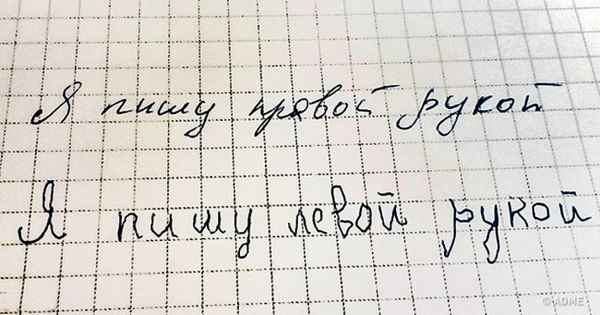 Я пишу правой рукой
Я пишу левой рукой
© ADME